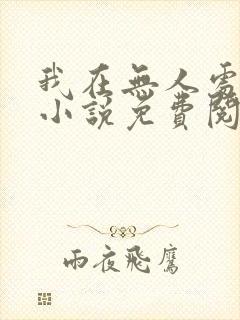 我在無人處
小說免費閱
雨夜飛鷹